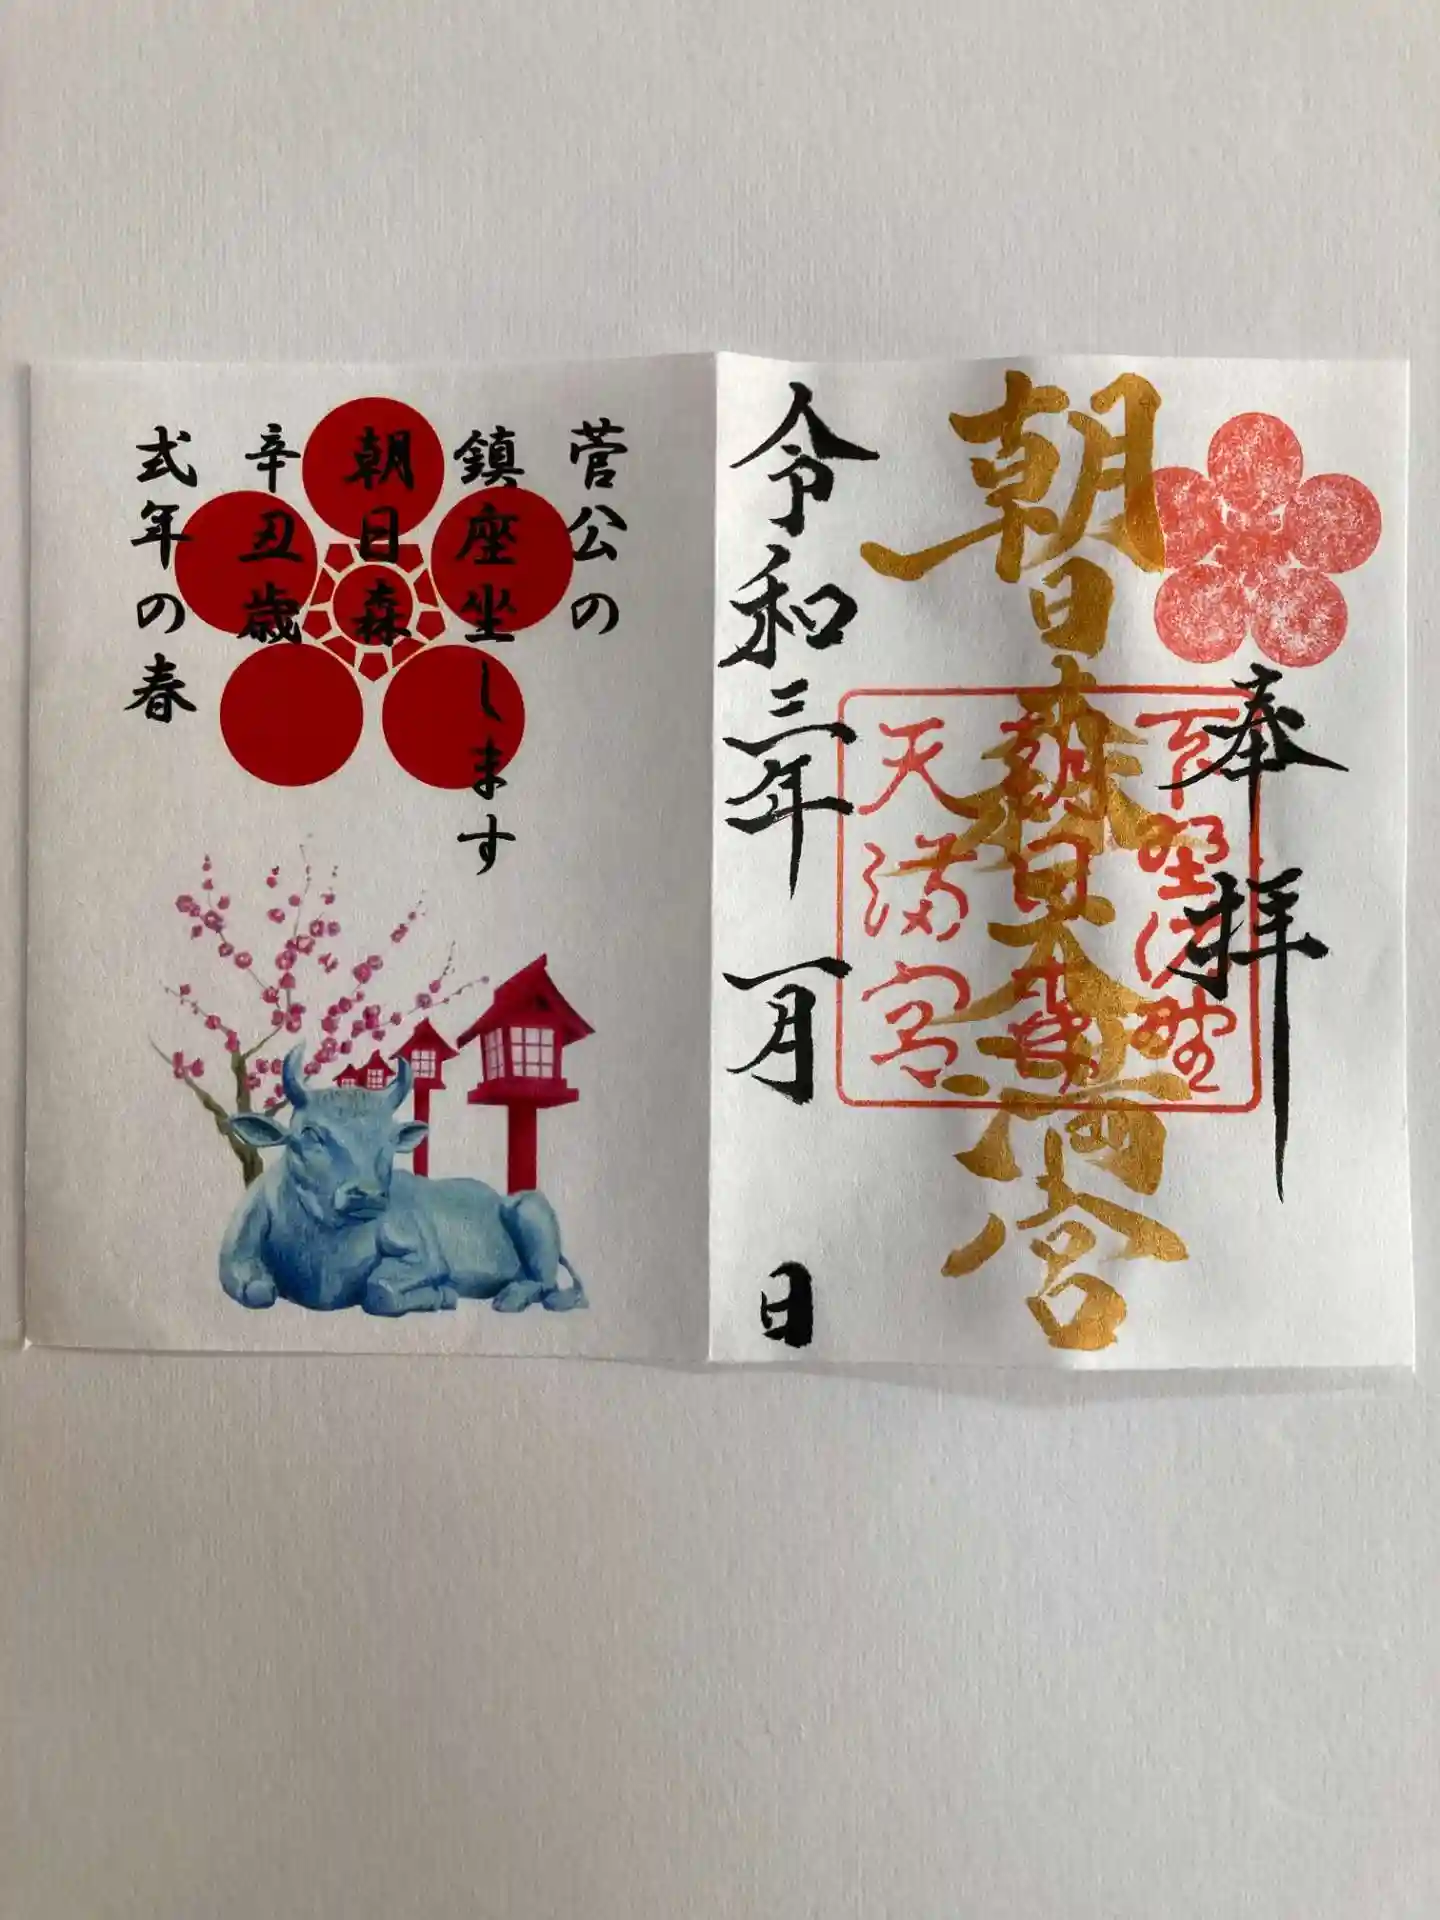 奉拝
朝日森天満宮
下野佐野
朝日森
天満宮
令和三年一月 日
菅公の
鎮座坐します
朝日森
辛丑歳
式年の春